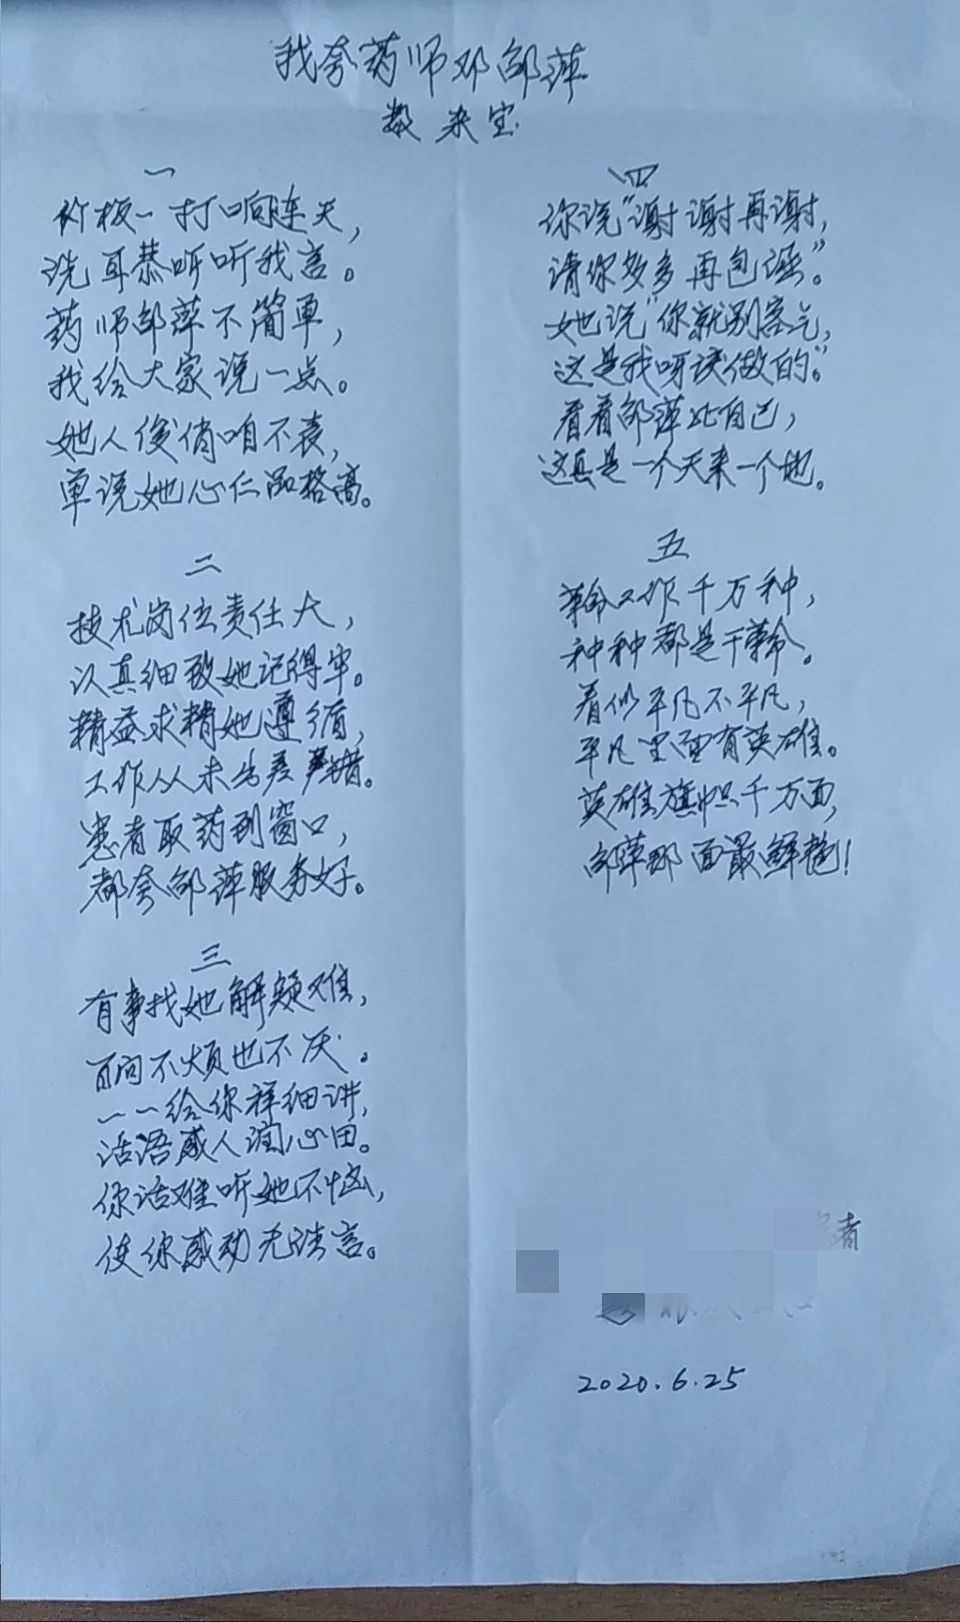 我夸药师邓邹萍
数来宝
一
竹板一打响连天，
洗耳恭听听我言。
药师邹萍不简单，
我给大家说一点。
她人俊俏咱不表，
单说她心仁品格高。
二
技术岗位责任大，
认真细致她记得牢。
精益求精她遵循，
工作从未出差错。
患者取药到窗口，
都夸邹萍服务好。
三
有事找她解疑难，
百问不烦也不厌。
一一给你祥细讲，
话语感人润心田。
你话难听她不恼，
使你感动无法言。
四
你说“谢谢再谢谢，
请你多多再包涵”。
她说“你就别客气，
这是我呀该做的。”
看看邹萍比自己，
这真是一个天来一个地。
五
革命工作千万种，
种种都是干革命。
看似平凡不平凡，
平凡里面有英雄。
英雄旗帜千万面，
邹萍那面最鲜艳！
者
2020.6.25